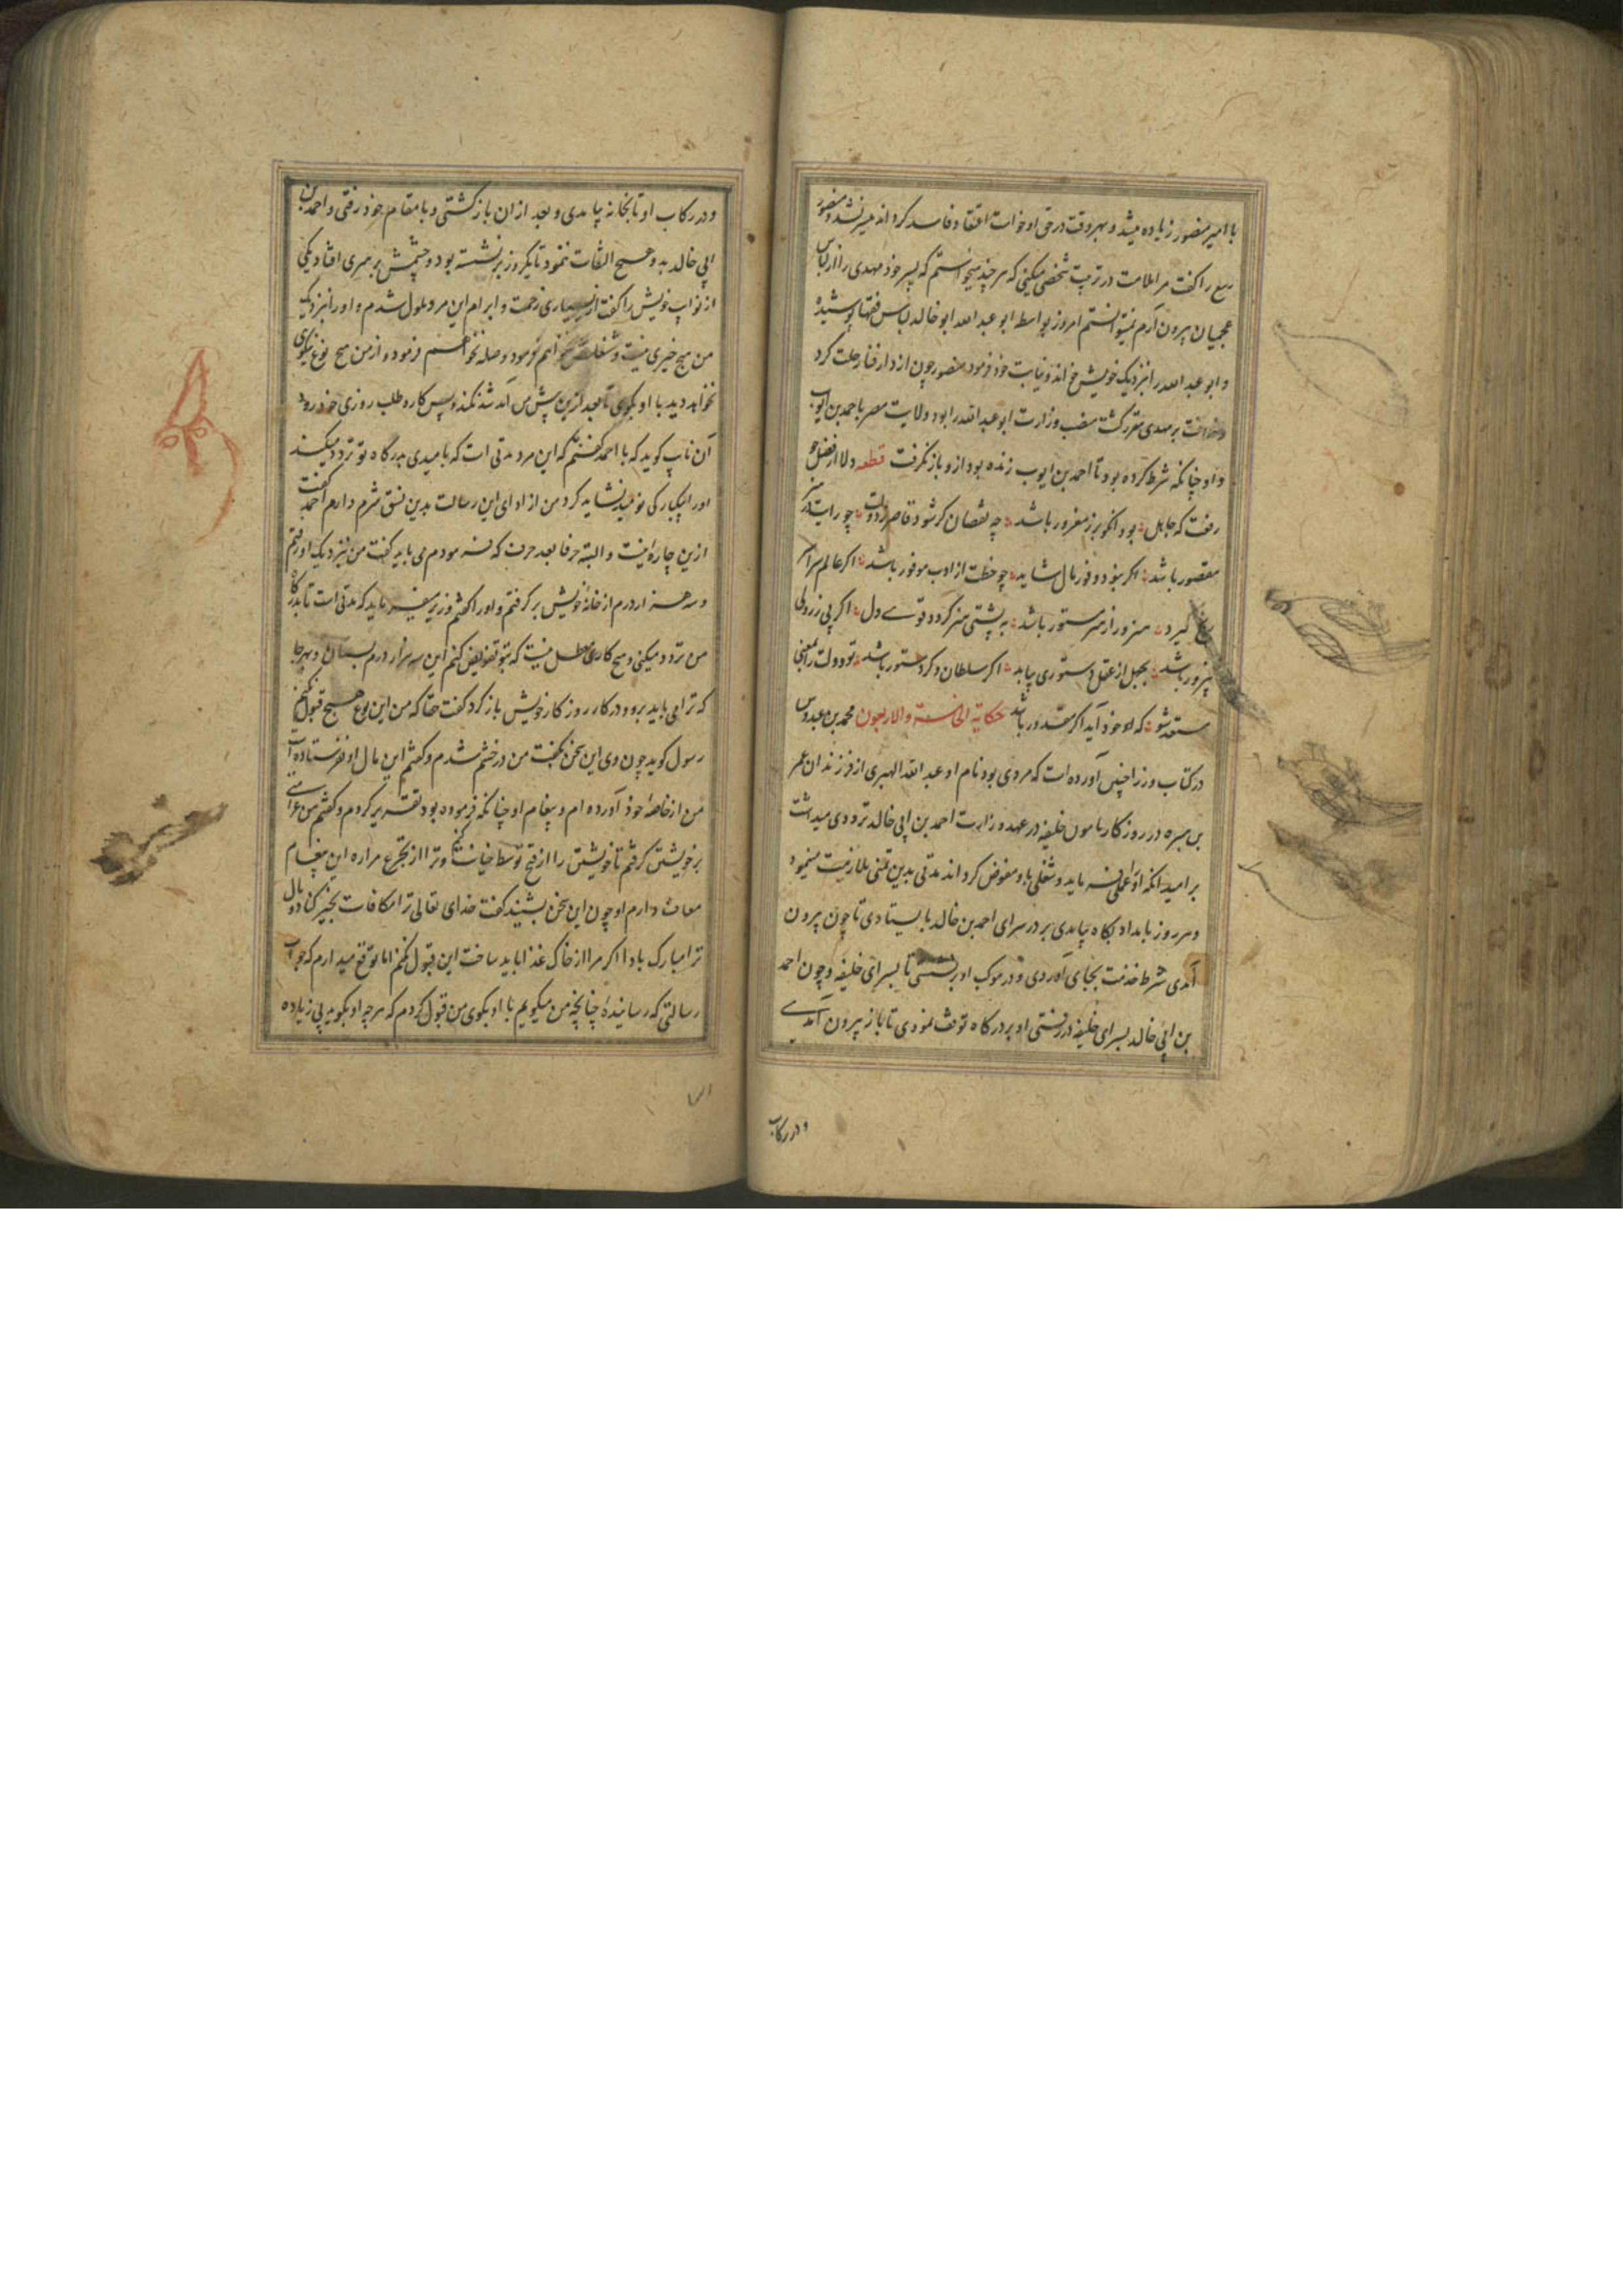 با امیر منصور زیاده میشد و بهر وقت در حق او خواست اعتقاد فاسد کرداند میسر نشد و منصور
ربیع را کفت مرا ملامت در تربیت شخصی میکنی که هر چند میخواستم که پسر خود مهدی را از لباس
عجمیان بیرون آرم نمیتوانستم امروز بواسطه ابو عبد الله ابو خالد لباس فقها پوشیده
و ابو عبد الله را بنزدیک خویش خواند و نیابت خود فرمود منصور چون از دار فنا رحلت کرد
و خلافت بر مهدی مقرر کشت منصب وزارت ابو عبد الله را بود ولایت مصر با احمد بن ایوب
داد و چنانکه شرط کرده بود تا احمد بن ایوب زنده بود ازو باز نکرفت قطعه دلا از فضل جو
رفعت که جاهل بود انکو بزر مغرور باشد چه نقصان کر شود قاصر ز دولت چو رایت در هنر
مقصور باشد اکر نبود وفور مال شاید چو حظت از ادب موفور باشد اکر عالم سراسر
تیغ کیرد هنرور از هنر مستور باشد به پشتی هنر کردد قوی دل اکر بی زر ولی
پرور باشد بجهل از عقل دستوری بیابد اکر سلطان و کر دستور باشد تو دولت را بمعنی
مستعد شو که او خود آید اکر مقدور باشد حکایة الخامسة والاربعون محمد بن عبدوس
در کتاب وزرا چنین آورده است که مردی بود نام او عبد الله الهبیری از فرزندان عمر
بن هبیره در روزکار مامون خلیفه در عهد وزارت احمد بن ابی خالد ترددی میداشت
بر امید انکه او را عملی فرماید و شغلی باو مفوض کرداند مدتی بدین تمنی ملازمت مینمود
و هر روز بامداد بکاه بیامدی بر در سرای احمد بن خالد بایستادی تا چون بیرون
آمدی شرط خدمت بجای آوردی و در موکب او برنشستی تا بسرای خلیفه و چون احمد
بن ابی خالد بسرای خلیفه در رفتی او بر درکاه توقف نمودی تا باز بیرون آمدی
و در رکاب
و در رکاب او تا بخانه بیامدی و بعد از ان باز کشتی و با مقام خود رفتی و احمد بن
ابی خالد بدو هیچ التفات ننمود تا یکروز برنشسته بود و چشمش بر هبیری افتاد یکی
از نواب خویش را کفت از بسیاری زحمت و ابرام این مرد ملول شدم و او را نزدیک
من هیچ خیری نیست و شغلش نخواهم فرمود و صله نخواهم فرمود و از من هیچ نوع نیکوی
نخواهد دید با او بکوی تا بعد ازین پیش من آمد شد نکند و پس کار و طلب روزی خود رود
آن نایب کوید که با احمد کفتم که این مرد مدتی است که بامیدی بدرکاه تو تردد میکند
او را بیکبارکی نومید نشاید کرد من از ادای این رسالت بدین نسق شرم دارم احمد کفت
ازین چاره نیست و البته حرفا بعد حرف که فرمودم می باید کفت من بنزدیک او رفتم
و سه هزار درم از خانه خویش بر کرفتم و او را کفتم وزیر میفرماید که مدتی است تا بدرکاه
من تردد میکنی و هیچ کاری معطل نیست که بتو تفویض کنم این سه هزار درم بستان و بهر جا
که ترا می باید برو و در کار روزکار خویش باز کرد کفت حقا که من این نوع هیچ قبول نکنم
رسول کوید چون وی این سخن بکفت من در خشم شدم و کفتم این مال او نفرستاده است
من از خاصه خود آورده ام و پیغام او چنانکه فرموده بود تقریر کردم و کفتم من غرامتی
بر خویشتن کرفتم تا خویشتن را از قبح توسط خیانت کنم و ترا از تجرع مراره این پیغام
معاف دارم او چون این سخن بشنید کفت خدای تعالی ترا مکافات بخیر کناد و مال
ترا مبارک باد اکر مرا از خاک غذا باید ساخت این قبول نکنم اما توقع میدارم که جواب
رسالتی که رسانیده چنانچه من میکویم با او بکوی من قبول کردم که هر چه او بکوید بی زیاده